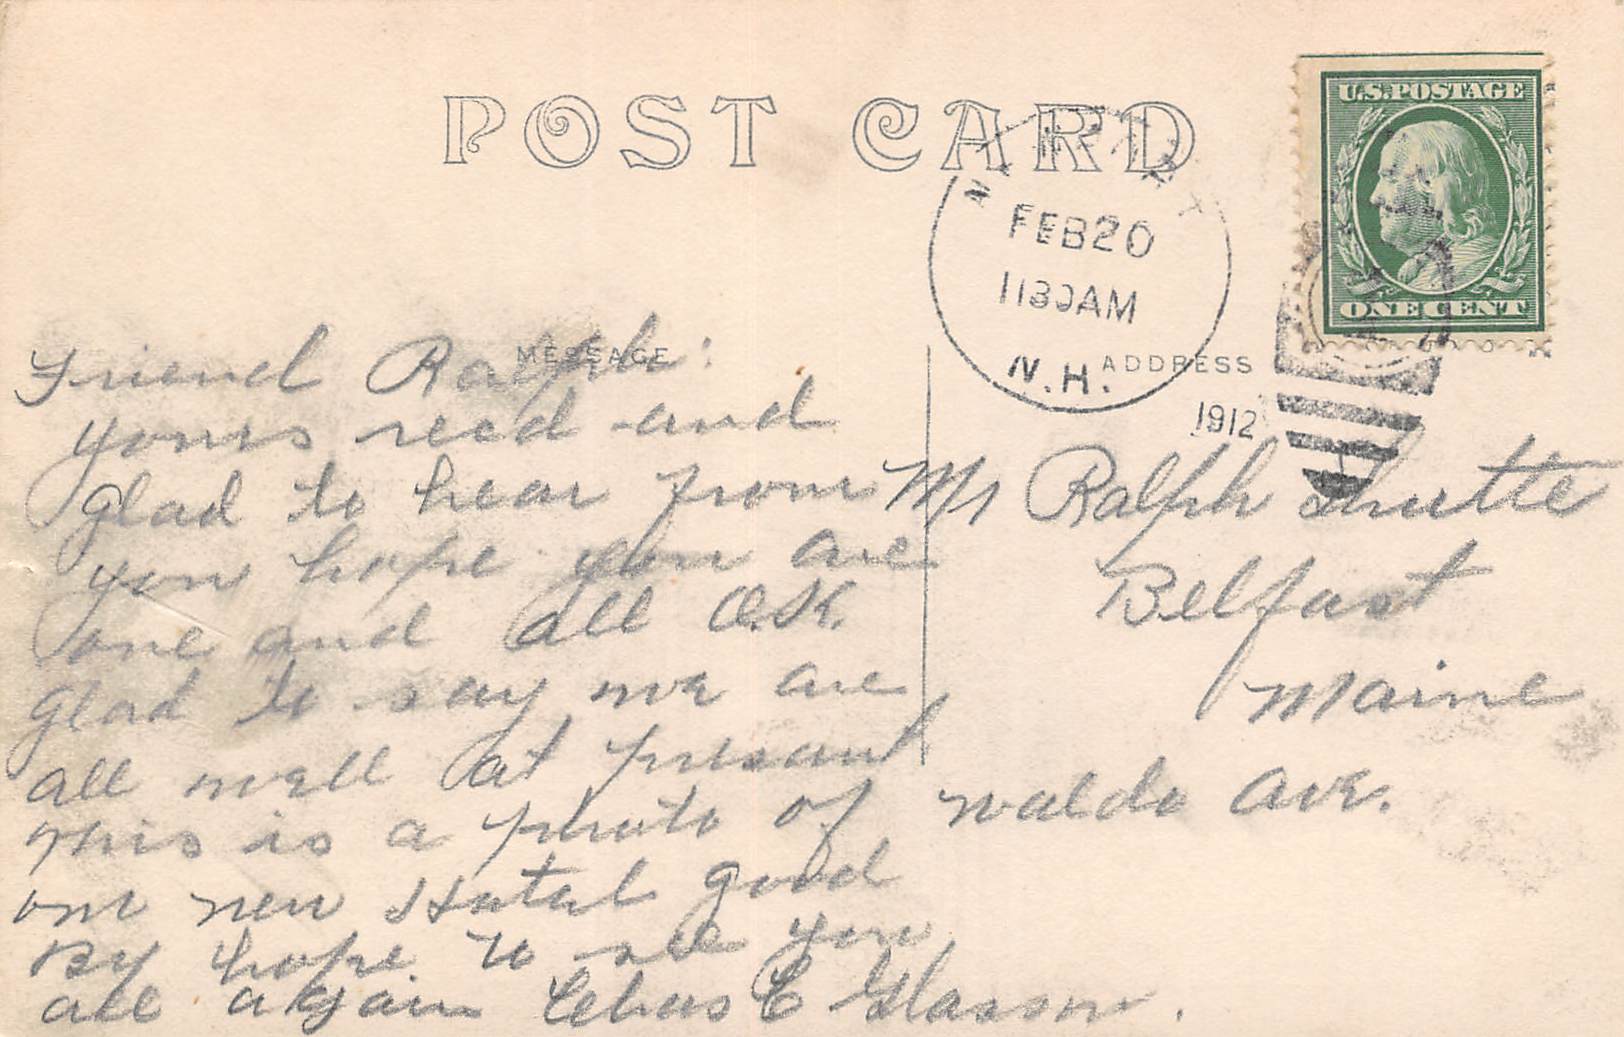 POST CARD
U.S.POSTAGE
ONE CENT
FEB20
1130AM
N.H.
1912
MESSAGE
ADDRESS
Friend Ralph:
yours recd and
glad to hear from
you hope you are
one and all O.K.
glad to say we are
all well at present
This is a photo of
our new Hotel good
By hope to see you
all again C Glasson.
Mr Ralph Shutte
Belfast
Maine
Waldo Ave.